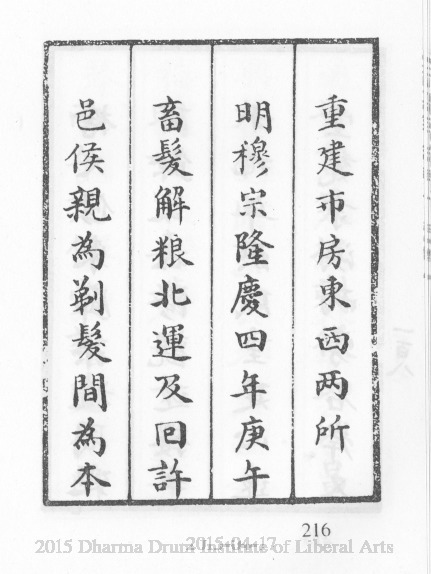 重建市房東西两所
明穆宗隆慶四年庚午
畜髮解粮北運及回許
邑侯親為剃髮間為本
216
2015-04-17
2015 Dharma Drum Institute of Liberal Arts